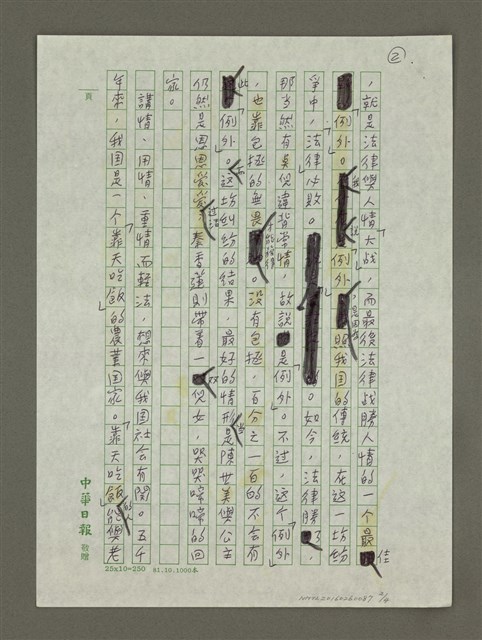 ②
，就是法律與人情大战，而最後法律战勝人情的一个最佳
「例外」。我說「例外」，是因為照我国的傳統，在这一坊紛
爭中，法律必敗。如今，法律勝了，
那当然有莫倪違背常情，故說是「例外」。不过，这个「例外」
，也靠包拯的無畏。没有包拯，百分之一百的不会有
此「例外」。这坊糾紛的结果，最好的情形是陳世美與公主
仍然是恩恩爱爱，秦香蓮則带着一双兒女，哭哭啼啼的回
家。
講情、用情、重情而輕法，想來與我国社会有関。五千
年來，我国是一个「靠天吃飯」的農業国家。「靠天吃飯」的人能與老
頁
中華日報 敬贈
25x10=250 81.10.1000本